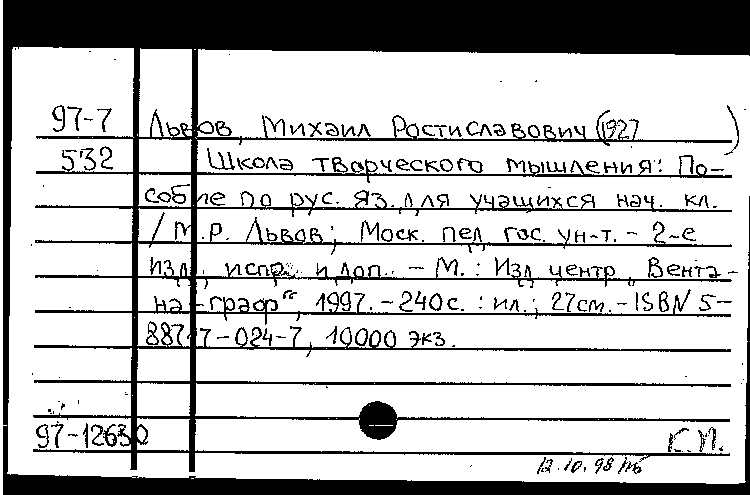 97-7 Львов, Михаил Ростиславович (1927 )
532 Школа творческого мышления: По-
собие по рус. яз. для учащихся нач. кл.
/ М.Р. Львов; Моск. пед. гос. ун-т. - 2-е
изд., испр. и доп. - М.: Изд. центр „Вента-
на-граф“, 1997. - 240 с. : ил.; 27 см. - ISBN 5-
88717-024-7, 10000 экз.
97-12630 К.П.
12.10.98